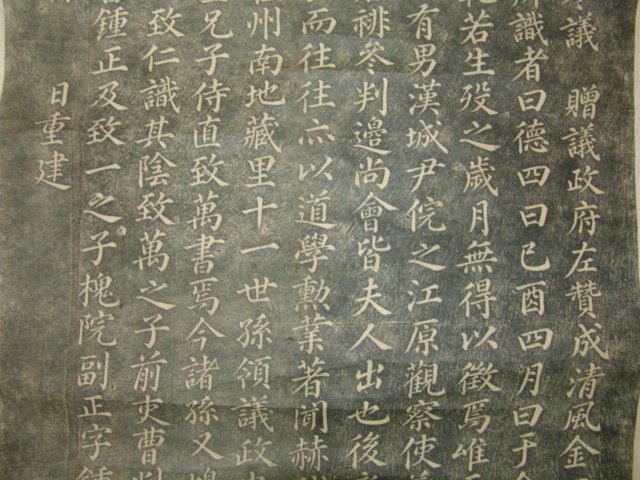 議 贈議政府左贊成清風金
識者曰德四曰己酉四月曰于
若生歿之歲月無得以徵焉唯
有男漢城尹侃之江原觀察使
裶參判邊尚會皆夫人出也後
而往往亦以道學勳業著聞赫
州南地藏里十一世孫領議政
兄子侍直致萬書焉今諸孫又
致仁識其陰致萬之子前吏曹判
鍾正及致一之子槐院副正字鍾
日重建